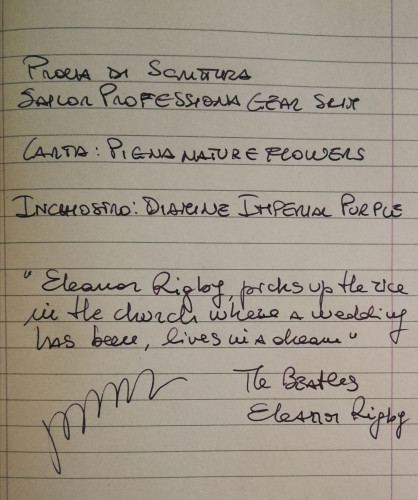 PROVA DI SCRITTURA
SAILOR PROFESSIONAL GEAR SLIM
CARTA: PIGNA NATURE FLOWERS
INCHIOSTRO: DIAMINE IMPERIAL PURPLE
"Eleanor Rigby, picks up the rice
in the church where a wedding
has been, lives in a dream"
The Beatles
Eleanor Rigby